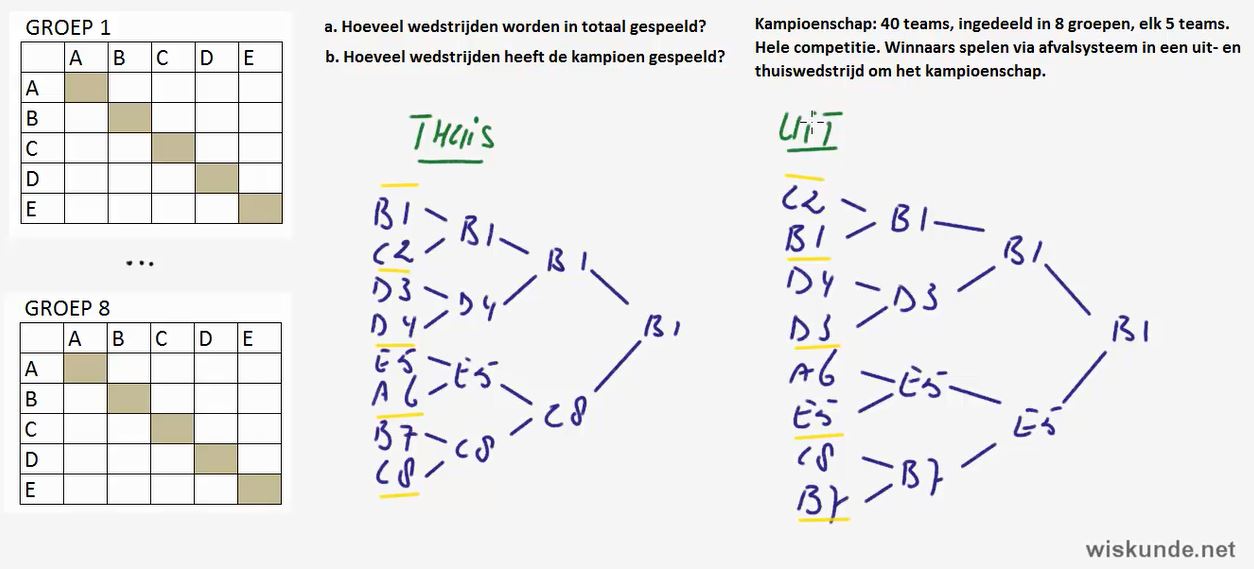 GROEP 1
A B C D E
A
B
C
D
E
...
GROEP 8
A B C D E
A
B
C
D
E
a. Hoeveel wedstrijden worden in totaal gespeeld?
b. Hoeveel wedstrijden heeft de kampioen gespeeld?
Kampioenschap: 40 teams, ingedeeld in 8 groepen, elk 5 teams.
Hele competitie. Winnaars spelen via afvalsysteem in een uit- en
thuiswedstrijd om het kampioenschap.
THUIS
B1
C2
D3
D4
E5
A6
B7
C8
B1
D4
E5
C8
B1
C8
B1
UIT
C2
B1
D4
D3
A6
E5
C8
B7
B1
D3
E5
B7
B1
E5
B1
wiskunde.net